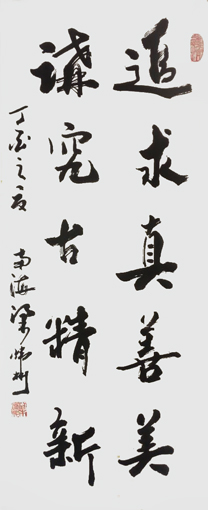 追求真善美
講究古精新
丁酉之夏 南海梁